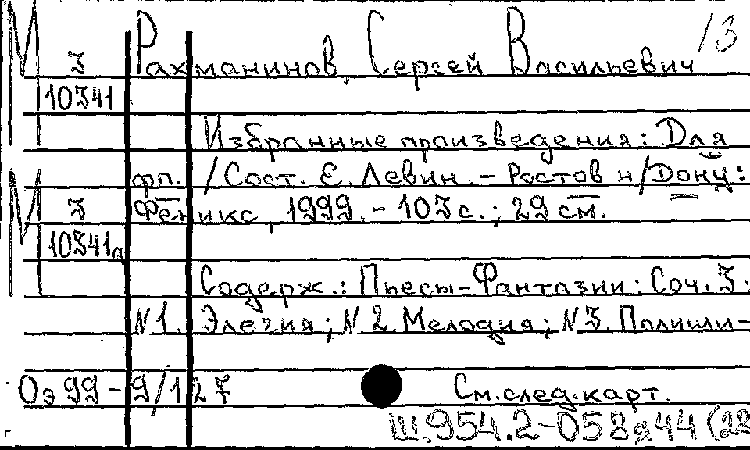 М
3
10341
Рахманинов, Сергей Васильевич
13
Избранные произведения: Для
фп. / Сост. Е. Левин. - Ростов н/Дону:
М
3
10341а
Феникс, 1999. - 103 с.; 29 см.
Содерж.: Пьесы-Фантазии: Соч. 3:
N 1. Элегия; N 2. Мелодия; N 3. Полиши-
Оэ 99 - 9/127
См. след. карт.
Ш.954.2-058я44 (28